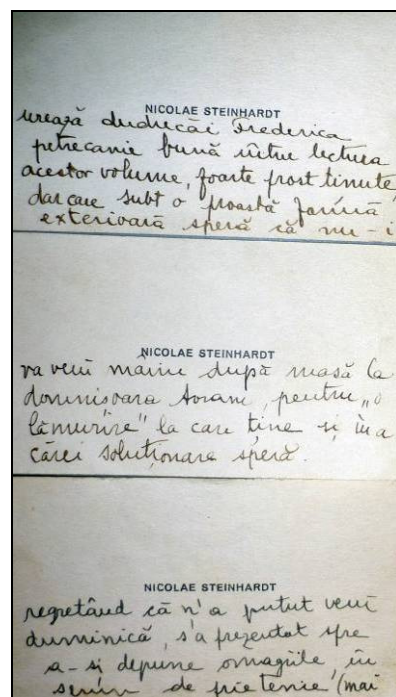 NICOLAE STEINHARDT
urează duducăi Frederica
petrecanie bună întru lectura
acestor volume, foarte prost ținute,
dar care subt o proastă
exterioară speră că nu-i
NICOLAE STEINHARDT
va veni mâine după masă la
domnisoara Avram, pentru „o
lămurire” la care ține și în a
cărei soluționare speră.
NICOLAE STEINHARDT
regretând că n'a putut veni
duminică, s'a prezentat spre
a-si depune omagiile, în
semn de prietenie (mai